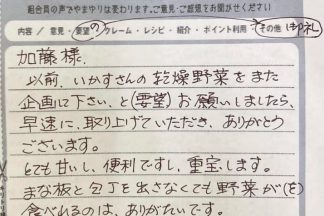 組合員の声でやまやりは変わります。ご意見・ご感想をお聞かせください
内容 / 意見・要望の クレーム・レシピ・紹介・ポイント利用 その他 御礼
加藤様.
以前、いかすさんの乾燥野菜をまた
企画に下さい、と(要望)お願いしましたら、
早速に、取り上げていただき、ありがとう
ございます。
とても甘いし、便利ですし、重宝します。
まな板と包丁を出さなくても野菜が(を)
食べれるのは、ありがたいです。